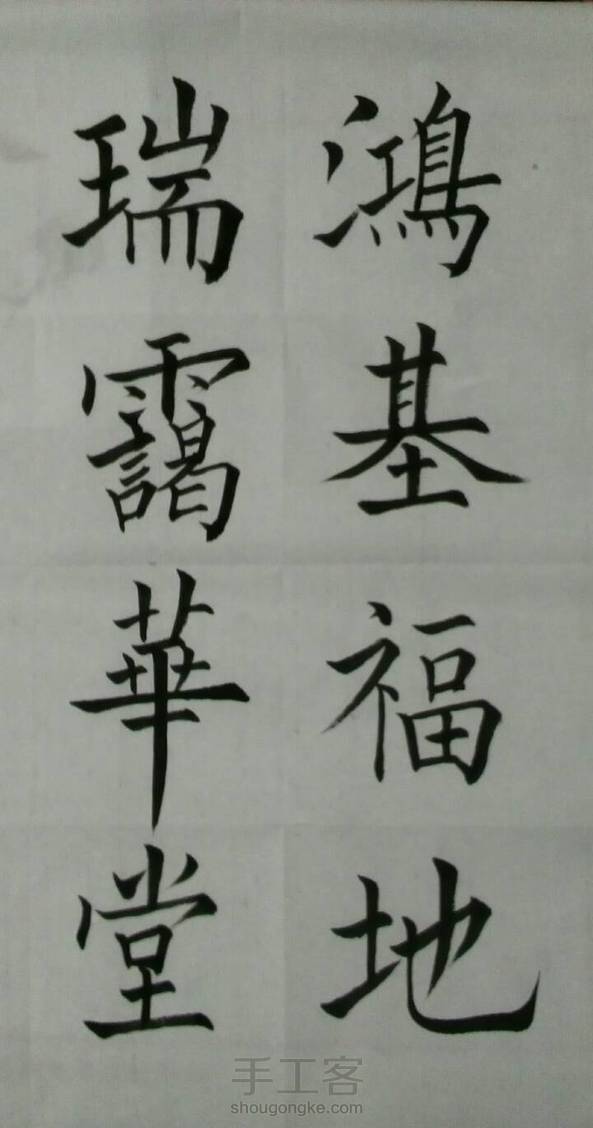 鴻基福地
瑞靄華堂
手工客
shougongke.com